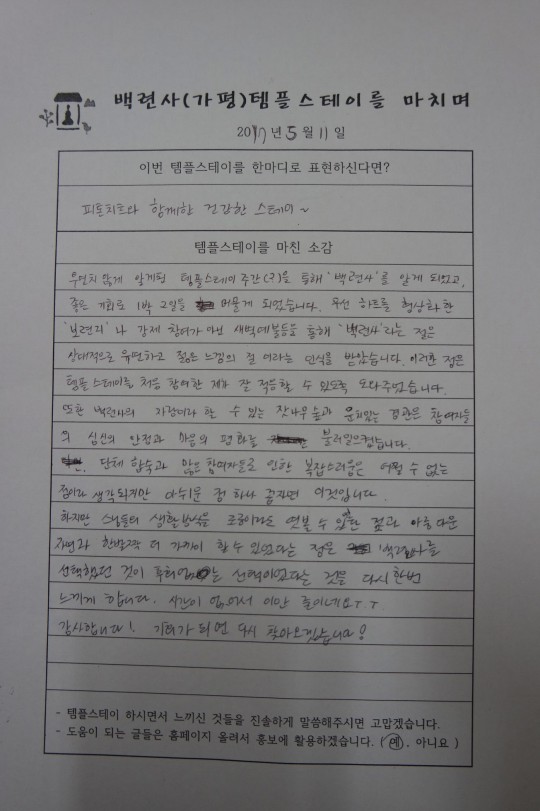 백련사(가평)템플스테이를 마치며
2017년 5월 11일
이번 템플스테이를 한마디로 표현하신다면?
피톤치드와 함께한 건강한 스테이~
템플스테이를 마친 소감
우연치 않게 알게된 템플스테이 주간(?)을 통해 '백련사'를 알게 되었고,
좋은 기회로 1박 2일을 머물게 되었습니다. 우선 하트를 형상화한
'보련지' 나 강제 참여가 아닌 새벽예불등을 통해 '백련사'라는 절은
상대적으로 유연하고 젊은 느낌의 절 이라는 인식을 받았습니다. 이러한 점은
템플스테이를 처음 참여한 제가 잘 적응할 수 있도록 도와주었습니다.
또한 백련사의 가장이라 할 수 있는 잣나무숲과 운치있는 경관은 참여자들
의 심신의 안정과 마음의 평화를 불러일으킵니다.
단체 합숙과 많은 참여자들로 인한 복잡스러움은 어쩔 수 없는
점이라 생각되지만 아쉬운 점 하나 꼽자면 이것입니다.
하지만 스님들의 생활방식을 조금이라도 엿볼 수 있었던 점과 아름다운
자연과 한발짝 더 가까이 할 수 있었다는 점은 '백련사'를
선택했던 것이 후회없는 선택이었다는 것을 다시한번
느끼게 합니다. 시간이 없어서 이만 줄이네요 T.T
감사합니다! 기회가 되면 다시 찾아오겠습니다!
- 템플스테이 하시면서 느끼신 것들을 진솔하게 말씀해주시면 고맙겠습니다.
- 도움이 되는 글들은 홈페이지 올려서 홍보에 활용하겠습니다. ( 예, 아니요 )